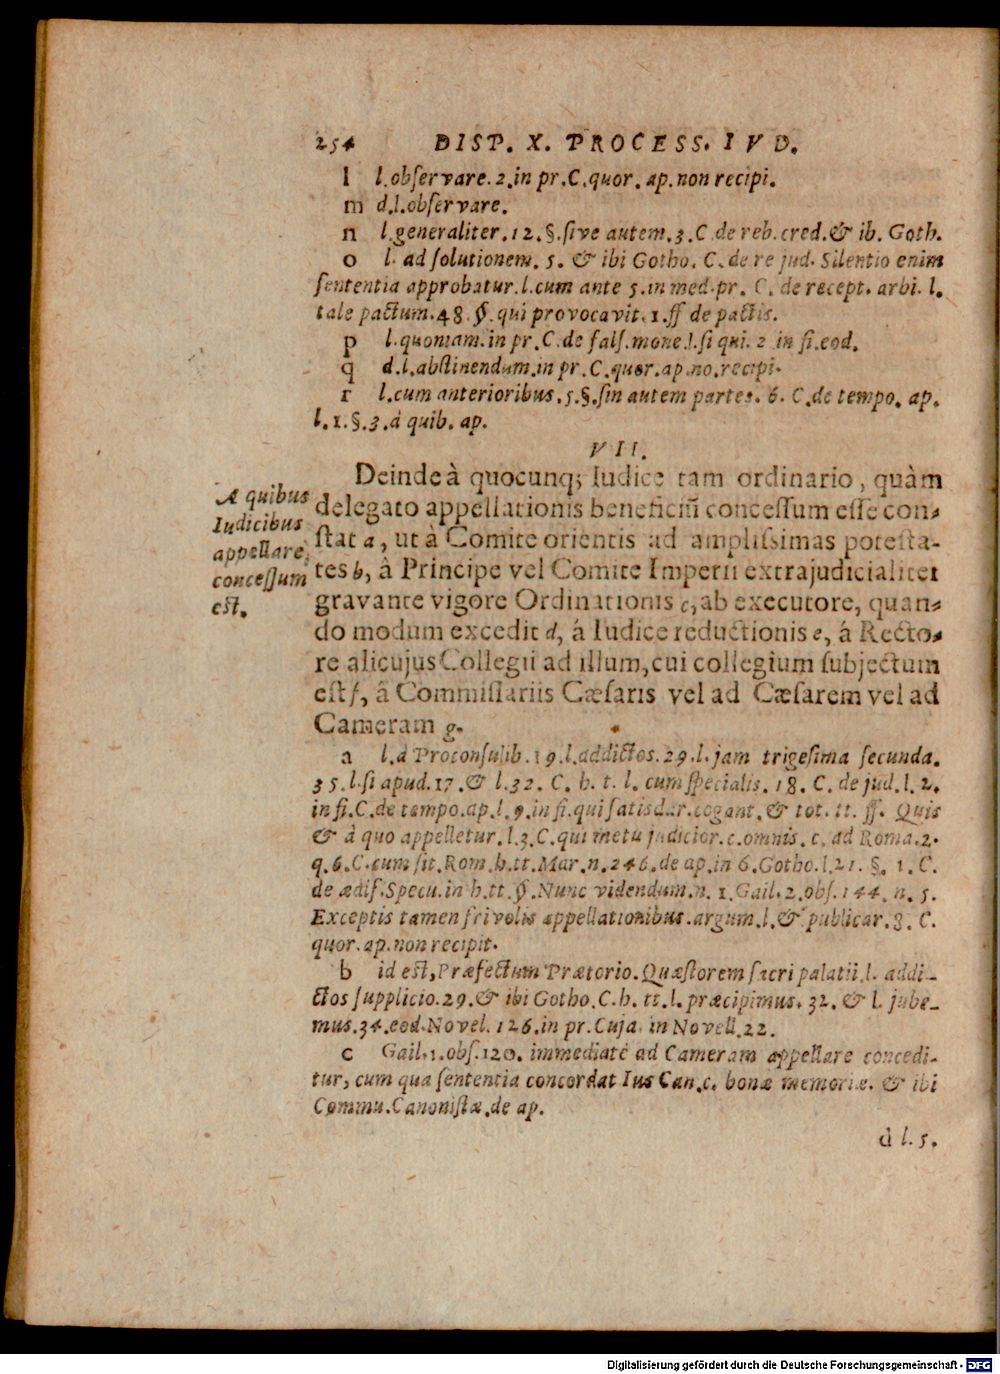 254 DISP. X. PROCESS. IVD.
l l.observare. 2. in pr. C. quor. ap. non recipi.
m d.l.observare.
n l.generaliter. 12. §. sive autem. 3. C. de reb. cred. & ib. Goth.
o l. ad solutionem. 5. & ibi Gotho. C. de re jud. Silentio enim
sententia approbatur. l. cum ante 5. in med. pr. C. de recept. arbi. l.
tale pactum. 48. §. qui provocavit. 1. ff de pactis.
p l.quoniam. in pr. C. de fals. mone. l. si qui. 2 in fi. eod.
q d.l.abstinendum. in pr. C. quor. ap. no. recipi.
r l.cum anterioribus. 5. §. sin autem partes. 6. C. de tempo. ap.
l. 1. §. 3. à quib. ap.
VII.
A quibus
Iudicibus
appellare
concessum
est.
Deinde à quocunq; Iudice tam ordinario, quàm
delegato appellationis beneficiũ concessum esse con-
stat a, ut à Comite orientis ad amplissimas potesta-
tes b, à Principe vel Comite Imperii extrajudicialiter
gravante vigore Ordinationis c, ab executore, quan-
do modum excedit d, á Iudice reductionis e, á Recto-
re alicujus Collegii ad illum, cui collegium subjectum
est f, â Commissariis Cæsaris vel ad Cæsarem vel ad
Cameram g.
a l.à Proconsulib. 19. l.addictos. 29. l. jam trigesima secunda.
35. l. si apud. 17. & l. 32. C. h. t. l. cum specialis. 18. C. de jud. l. 2.
in fi. C. de tempo. ap. l. 9. in fi. qui satisdar. cogant. & tot. tt. ff. Quis
& à quo appelletur. l. 3. C. qui metu judicior. c. omnis. c. ad Roma. 2.
q. 6. C. cum sit. Rom. h. tt. Mar. n. 246. de ap. in 6. Gotho. l. 21. §. 1. C.
de ædif. Specu. in h. tt. §. Nunc videndum. n. 1. Gail. 2. obs. 144. n. 5.
Exceptis tamen frivolis appellationibus. argum. l. & publicar. 8. C.
quor. ap. non recipit.
b id est, Præfectum Prætorio. Quæstorem sacri palatii. l. addi-
ctos supplicio. 29. & ibi Gotho. C. h. tt. l. præcipimus. 32. & l. jube-
mus. 34. eod. Novel. 126. in pr. Cuja. in Novell. 22.
c Gail. 1. obs. 120. immediatè ad Cameram appellare concedi-
tur, cum qua sententia concordat Ius Can. c. bonæ memoriæ. & ibi
Commu. Canonistæ. de ap.
d l. 5.
Digitalisierung gefördert durch die Deutsche Forschungsgemeinschaft - DFG